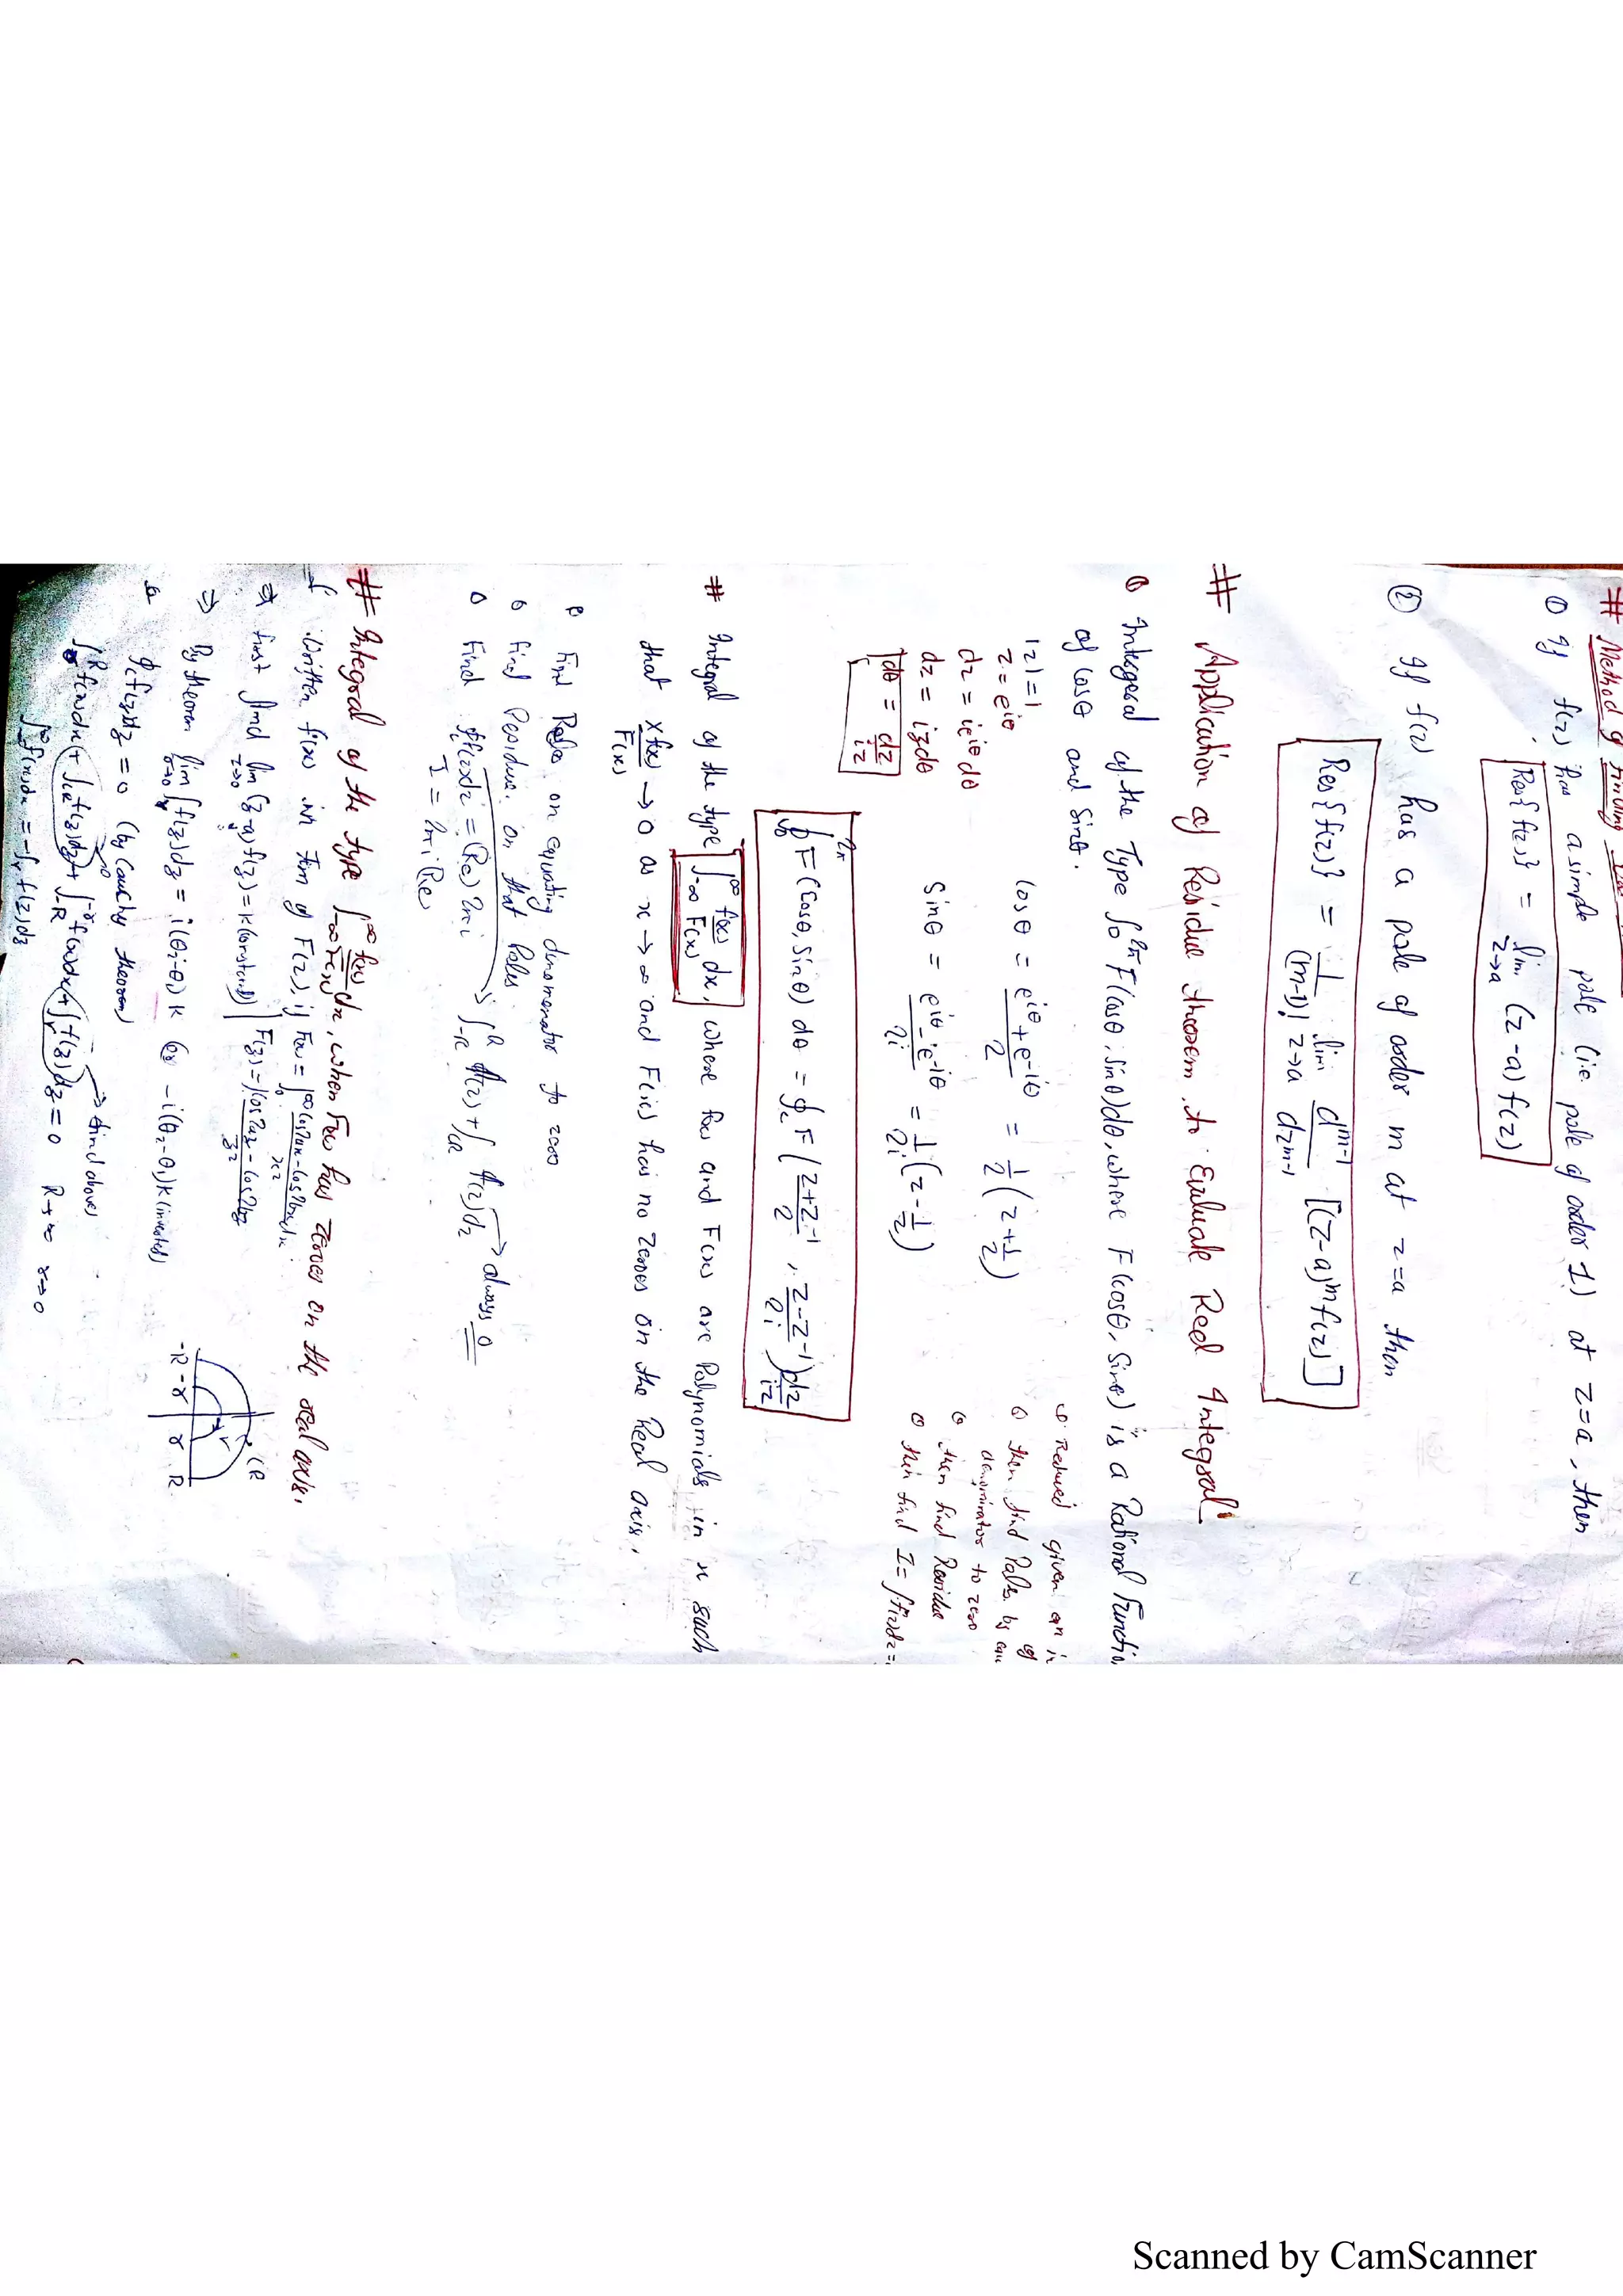 # Method of Finding
① If f(z) has a simple pole (i.e. pole of order 1) at z=a, then
Res{f(z)} = lim z→a (z-a) f(z)
② If f(z) has a pole of order m at z=a then
Res{f(z)} = 1/(m-1)! lim z→a d^m-1/dz^m-1 [(z-a)^m f(z)]
# Application of Residue theorem to Evaluate Real Integral
Integral of the Type ∫0^2π F(cosθ, sinθ)dθ, where F(cosθ, sinθ) is a Rational Functio
of cosθ and sinθ.
|z|=1
z=e^iθ
dz = ie^iθ dθ
dz = izdθ
dθ = dz/iz
cosθ = (e^iθ + e^-iθ)/2 = 1/2 (z + 1/z)
sinθ = (e^iθ - e^-iθ)/2i = 1/2i (z - 1/z)
Reduced given in
then find Poles by
denominator to zero
then find Residue
then find I = ∫f(z)dz =
∮0^2π F(cosθ, sinθ) dθ = ∮c F((z+z^-1)/2, (z-z^-1)/2i) dz/iz
# Integral of the type ∫-∞^∞ f(x)/F(x) dx, where f(x) and F(x) are Polynomials in x such
that xf(x)/F(x) → 0 as x→∞ and F(x) has no zeroes on the Real axis.
Find Poles on equating denomenator to zero
find Residue on that Poles
Find ∮c f(z)dz = (Re) 2πi → ∫-R^R f(z) + ∫CR f(z)dz → always 0
I = 2πi Re
# Integral of the type ∫-∞^∞ f(x)/F(x) dx, when F(x) has zeroes on the real axis.
Written f(x) in Form of F(z), if F(x) = ∫0^∞ (cos2ax - cos2bx)/x^2 dx
⇒ first find lim z→0 (z-a)f(z) = k (constant) | F(z) = (cos2az - cos2bz)/z^2
⇒ By theorem lim r→0 ∫r f(z)dz = i(θ2-θ1)k or -i(θ2-θ1)k
∮c f(z)dz = 0 (by Cauchy theorem)
∫r^R f(x)dx + ∫CR f(z)dz + ∫-R^-r f(x)dx + ∫r f(z)dz = 0 R→∞ r→0
→ 0
→ find above
∫-∞^∞ f(x)dx = -∫r f(z)dz
CR
r
-R -r r R
Scanned by CamScanner